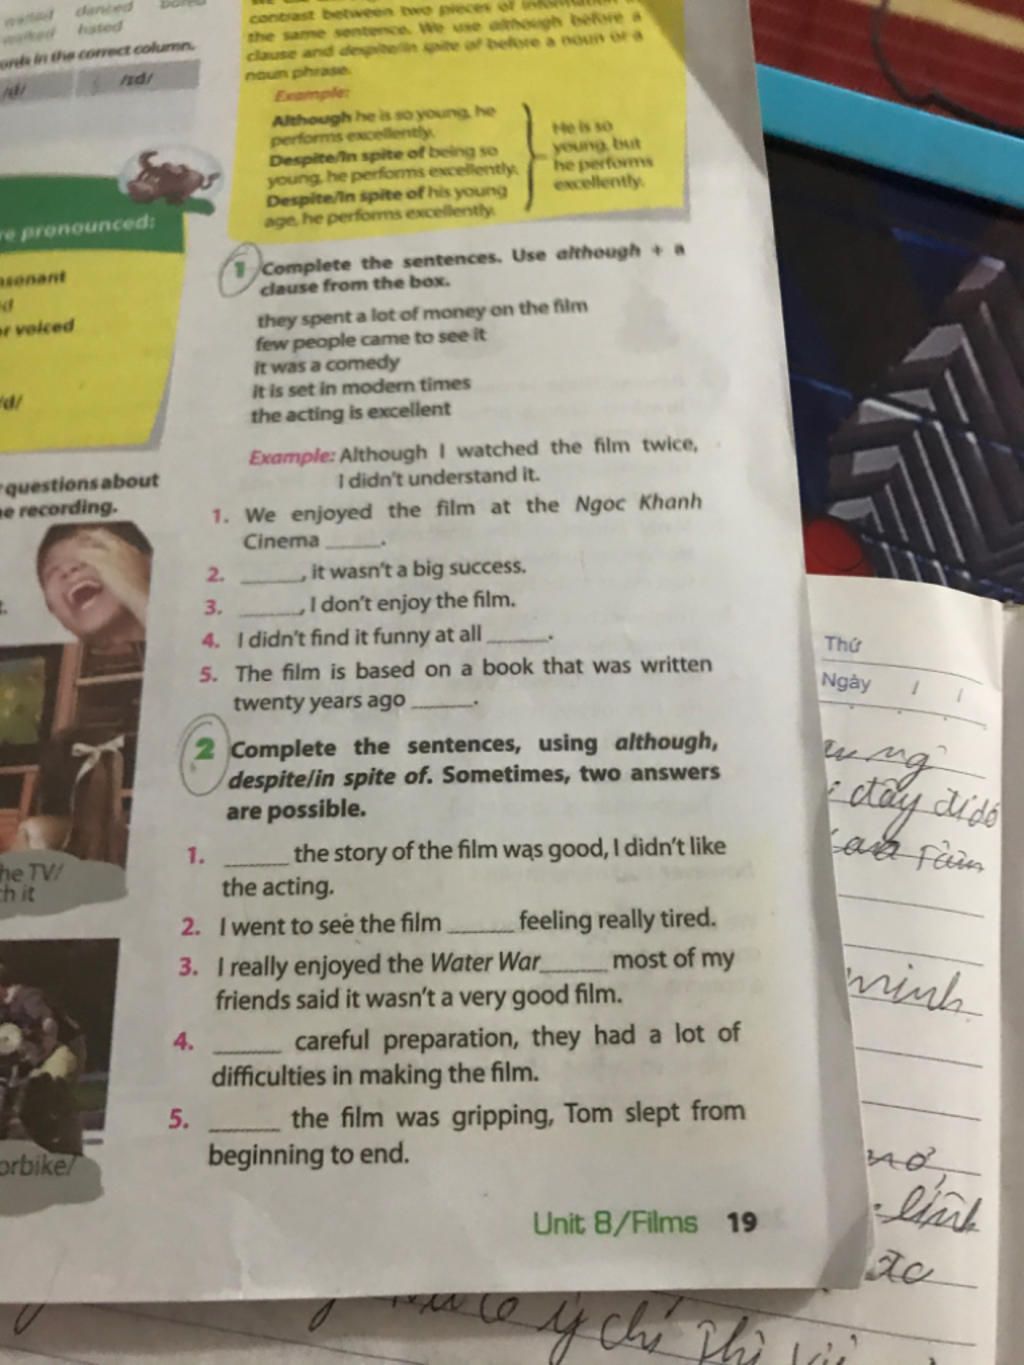 waited danced bored
walked hated
words in the correct column.
/d/ /ɪd/
re pronounced:
nsonant
d
r voiced
/d/
questions about
e recording.
t.
he TV/
h it
orbike/
contrast between two pieces of information in
the same sentence. We use although before a
clause and despite/in spite of before a noun or a
noun phrase.
Example:
Although he is so young, he
performs excellently.
Despite/In spite of being so
young, he performs excellently.
Despite/In spite of his young
age, he performs excellently.
= He is so
young, but
he performs
excellently.
1 Complete the sentences. Use although + a
clause from the box.
they spent a lot of money on the film
few people came to see it
it was a comedy
it is set in modern times
the acting is excellent
Example: Although I watched the film twice,
I didn't understand it.
1. We enjoyed the film at the Ngoc Khanh
Cinema ______.
2. ______, it wasn't a big success.
3. ______, I don't enjoy the film.
4. I didn't find it funny at all ______.
5. The film is based on a book that was written
twenty years ago ______.
2 Complete the sentences, using although,
despite/in spite of. Sometimes, two answers
are possible.
1. ______ the story of the film was good, I didn't like
the acting.
2. I went to see the film ______ feeling really tired.
3. I really enjoyed the Water War ______ most of my
friends said it wasn't a very good film.
4. ______ careful preparation, they had a lot of
difficulties in making the film.
5. ______ the film was gripping, Tom slept from
beginning to end.
Unit 8/Films 19
Thứ
Ngày / /
đây đi đó
minh
lính
ý chí thì